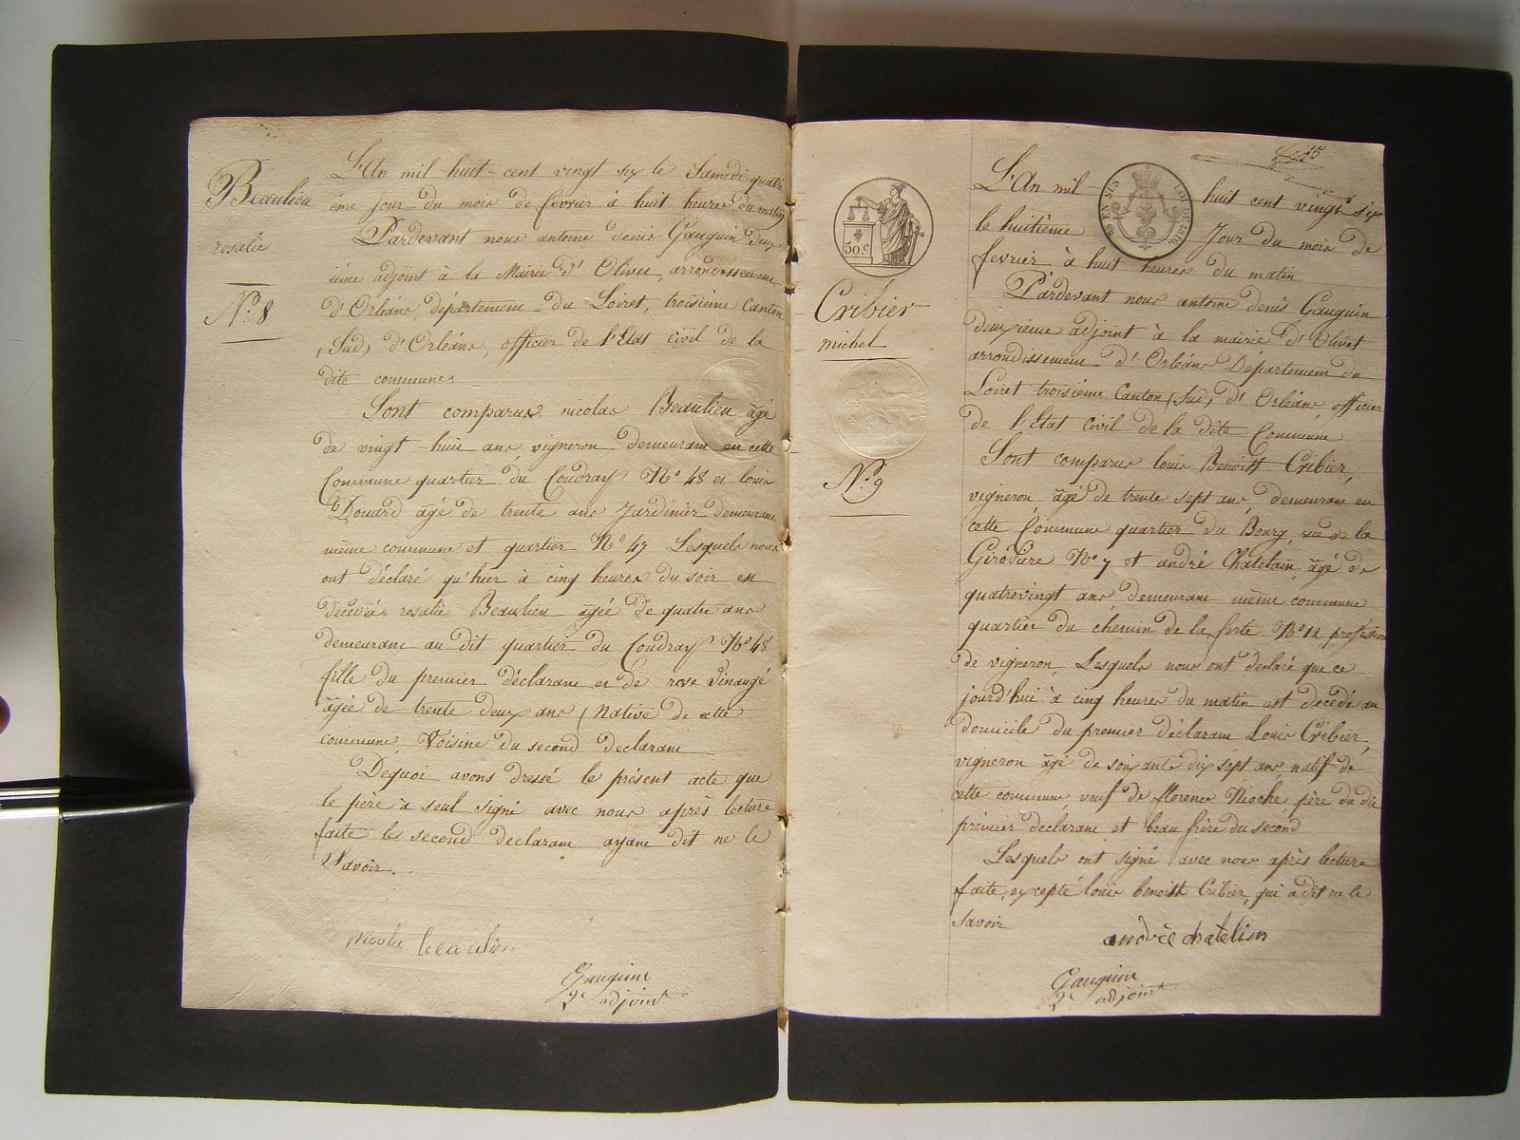 Beaulieu
rosalie
N.° 8
L'An mil huit-cent vingt six le Samedi quatri
ème jour du mois de fevrier à huit heures du matin
Pardevant nous antoine denis Gauguin deux
ième adjoint à la Mairie d'Olivet, arrondissement
d'Orléans, département du Loiret, troisième Canton
(Sud) d'Orléans, officier de l'Etat civil de la
dite commune
Sont comparus nicolas Beaulieu âgé
de vingt-huit ans, vigneron demeurant en cette
Commune quartier du Coudray N° 48 et louis
Douard âgé de trente ans Jardinier demeurant
même commune et quartier N° 47 Lesquels nous
ont déclaré qu'hier à cinq heures du soir est
décédée rosalie Beaulieu âgée de quatre ans
demeurant au dit quartier du Coudray N° 48
fille du premier déclarant et de rose
âgée de trente deux ans (Native de cette
commune, Voisine du second declarant
Dequoi avons dressé le présent acte que
le père à seul signé avec nous après lecture
faite le second declarant ayant dit ne le
savoir.
nicolas beaulieu
Gauguin
2e adjoint
15
50.c
Cribier
michel
N.° 9
L'An mil huit cent vingt six
le huitième Jour du mois de
fevrier à huit heures du matin
Pardevant nous antoine denis Gauguin
deuxième adjoint à la mairie d'Olivet
arrondissement d'Orléans Département du
Loiret troisième Canton (Sud) d'Orléans officier
de l'Etat civil de la dite Commune
Sont comparus louis Benoist Cribier,
vigneron, âgé de trente sept ans, demeurant en
cette Commune quartier du Bourg, rue de la
N° 7 et andré Chatelain, âgé de
quatrevingt ans demeurant même commune
quartier du chemin de la ferté N° 12 profession
de vigneron, Lesquels nous ont declaré que ce
jourd'hui à cinq heures du matin est décédé au
domicile du premier déclarant Louis Cribier,
vigneron âgé de soixante dix sept ans natif de
cette commune, veuf de florence père du dit
premier declarant et beau frère du second
Lesquels ont signé avec nous après lecture
faite, excepté louis benoist Cribier, qui a dit ne le
savoir
andrée chatelain
Gauguin
2e adjoint